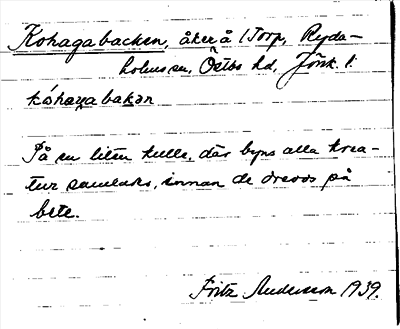 Kohagabacken, åker å 1 Torp, Ryda-
holms sn, Östbo hd, Jönk. l.
kóhaga bakan
På en liten kulle, där byns alla krea-
tur samlades, innan de drevos på
bete.
Fritz Andersson 1939.